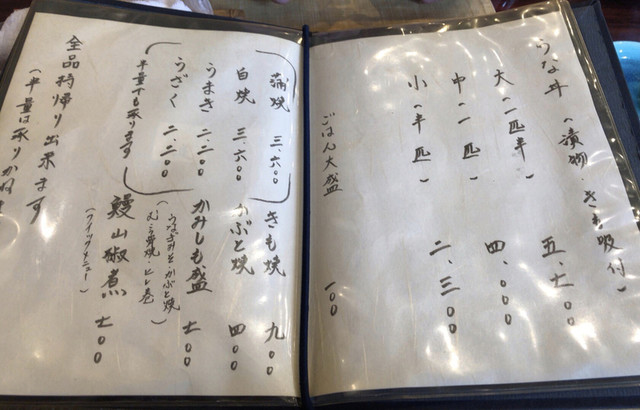 うな丼（漬物 きも吸付）
大（一匹半）五、七〇〇
中（一 匹）四、〇〇〇
小（半 匹）二、三〇〇
ごはん大盛 一〇〇
蒲焼 三、六〇〇
白焼 三、六〇〇
うまき 二、二〇〇
うざく 二、二〇〇
半量でも承ります
きも焼 九〇〇
かぶと焼 四〇〇
かみしも盛 七〇〇
鰻山椒煮 七〇〇
（クイックメニュー）
全品持帰り出来ます
（半量は承りかね